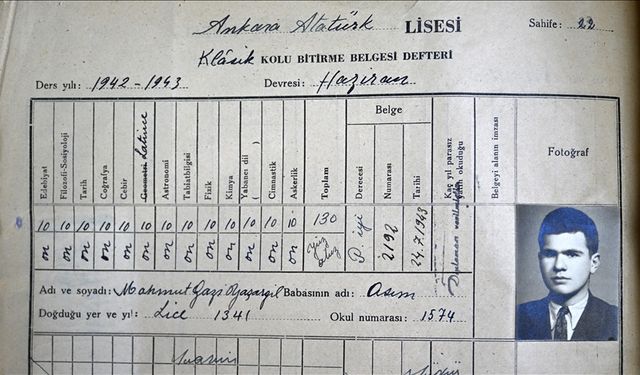 Ankara Atatürk LİSESİ Sahife: 22
Klâsik KOLU BİTİRME BELGESİ DEFTERİ
Ders yılı: 1942-1943 Devresi: Haziran
Edebiyat Filozofi-Sosyoloji Tarih Coğrafya Cebir Geometri Latince Astronomi Tabiatbilgisi Fizik Kimya Yabancı dil ( ) Cimnastik Askerlik Toplam Belge Derecesi Numarası Tarihi Kaç yıl parasız yatılı okuduğu Belgeyi alanın imzası Fotoğraf
10 10 10 10 10 10 10 10 10 10 10 10 10 130
on on on on on on on on on on on on on Yüz otuz P. iyi 2192 24.7.1943
Adı ve soyadı: Mahmut Gazi Yaşargil Babasının adı: Asım
Doğduğu yer ve yıl: Lice 1341 Okul numarası: 1574